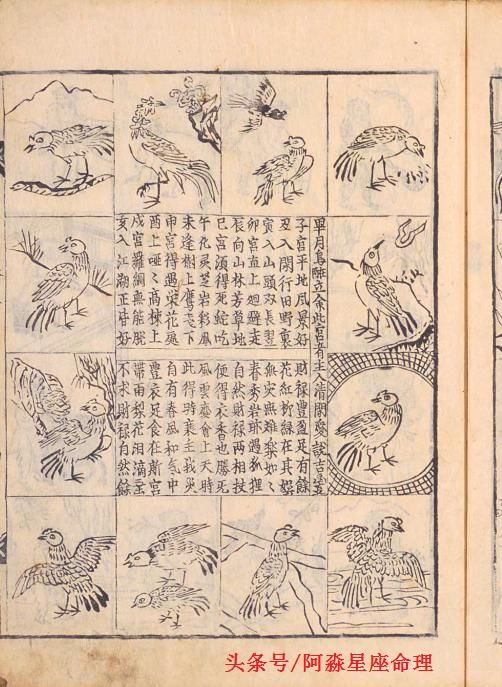 畢月烏雖立命此宮有主人清閑説吉
子宮平地風景好財祿豐盈足有餘
丑入閑行田野裏花紅柳綠在其娛
寅入山頭双長翌無災無難樂如
卯宮直上廻避走春秀岩遇狐狸
辰向山林芳草地自然財祿兩相扶
巳宮湏得死蛇吃便得衣香也勝死
午化灵芝岩彩鳳風雲齊會上天時
未逢樹上鷹下此得時來主我災
申宮得遇栄花庭自有春風和氣中
酉上哑々高棟上豊衣足食在斯宮
戌宮羅網無能脫帶雨梨花相滴垂
亥入江湖正皆好不求財祿自然餘
头条号/阿淼星座命理